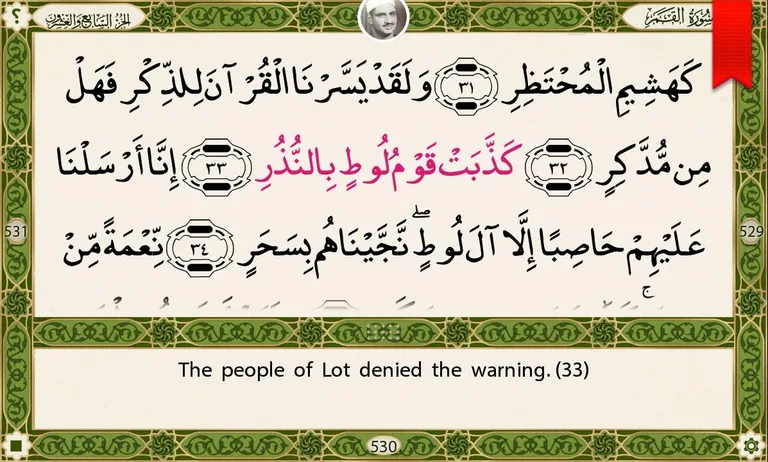 ؟
الجزء السابع والعشرون
سورة القمر
كَهَشِيمِ الْمُحْتَظِرِ ٣١ وَلَقَدْ يَسَّرْنَا الْقُرْآنَ لِلذِّكْرِ فَهَلْ
مِن مُّدَّكِرٍ ٣٢ كَذَّبَتْ قَوْمُ لُوطٍ بِالنُّذُرِ ٣٣ إِنَّا أَرْسَلْنَا
531
529
عَلَيْهِمْ حَاصِبًا إِلَّا آلَ لُوطٍ ۖ نَّجَّيْنَاهُم بِسَحَرٍ ٣٤ نِّعْمَةً مِّنْ
The people of Lot denied the warning. (33)
530